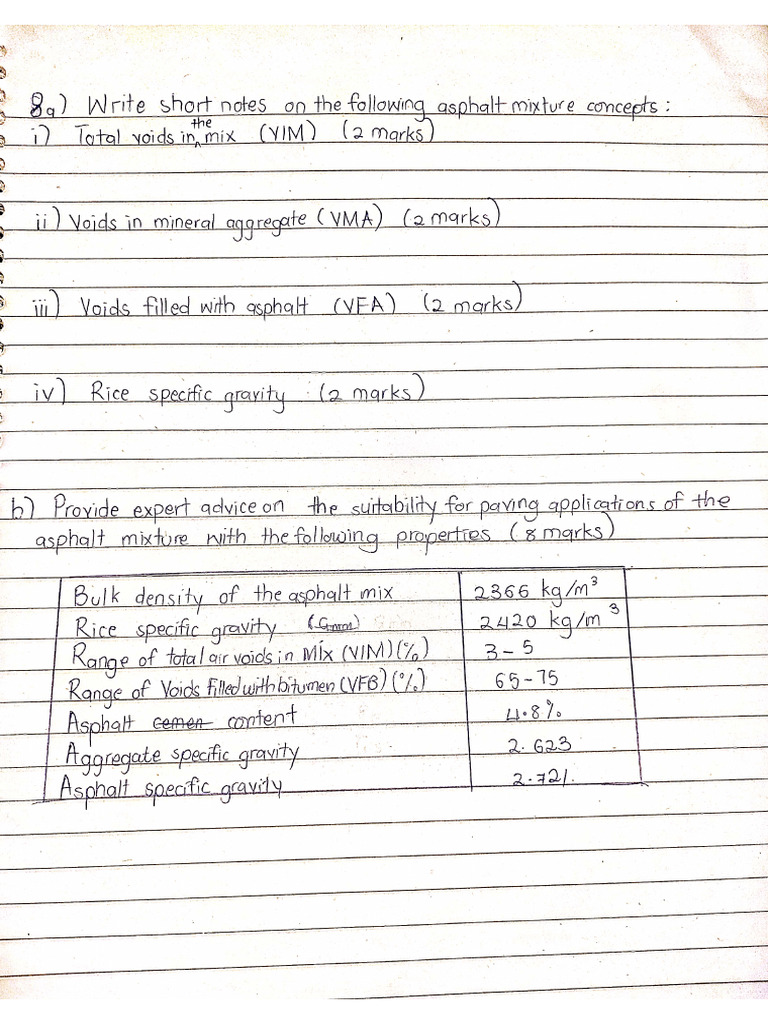 8a) Write short notes on the following asphalt mixture concepts :
i) Total voids in the mix (VIM) (2 marks)
ii) Voids in mineral aggregate (VMA) (2 marks)
iii) Voids filled with asphalt (VFA) (2 marks)
iv) Rice specific gravity (2 marks)
b) Provide expert advice on the suitability for paving applications of the
asphalt mixture with the following properties (8 marks)
Bulk density of the asphalt mix 2366 kg/m³
Rice specific gravity (Gmm) 2420 kg/m³
Range of total air voids in Mix (VIM) (%) 3-5
Range of Voids filled with bitumen (VFB) (%) 65-75
Asphalt cemen content 4.8%
Aggregate specific gravity 2.623
Asphalt specific gravity 2.721.